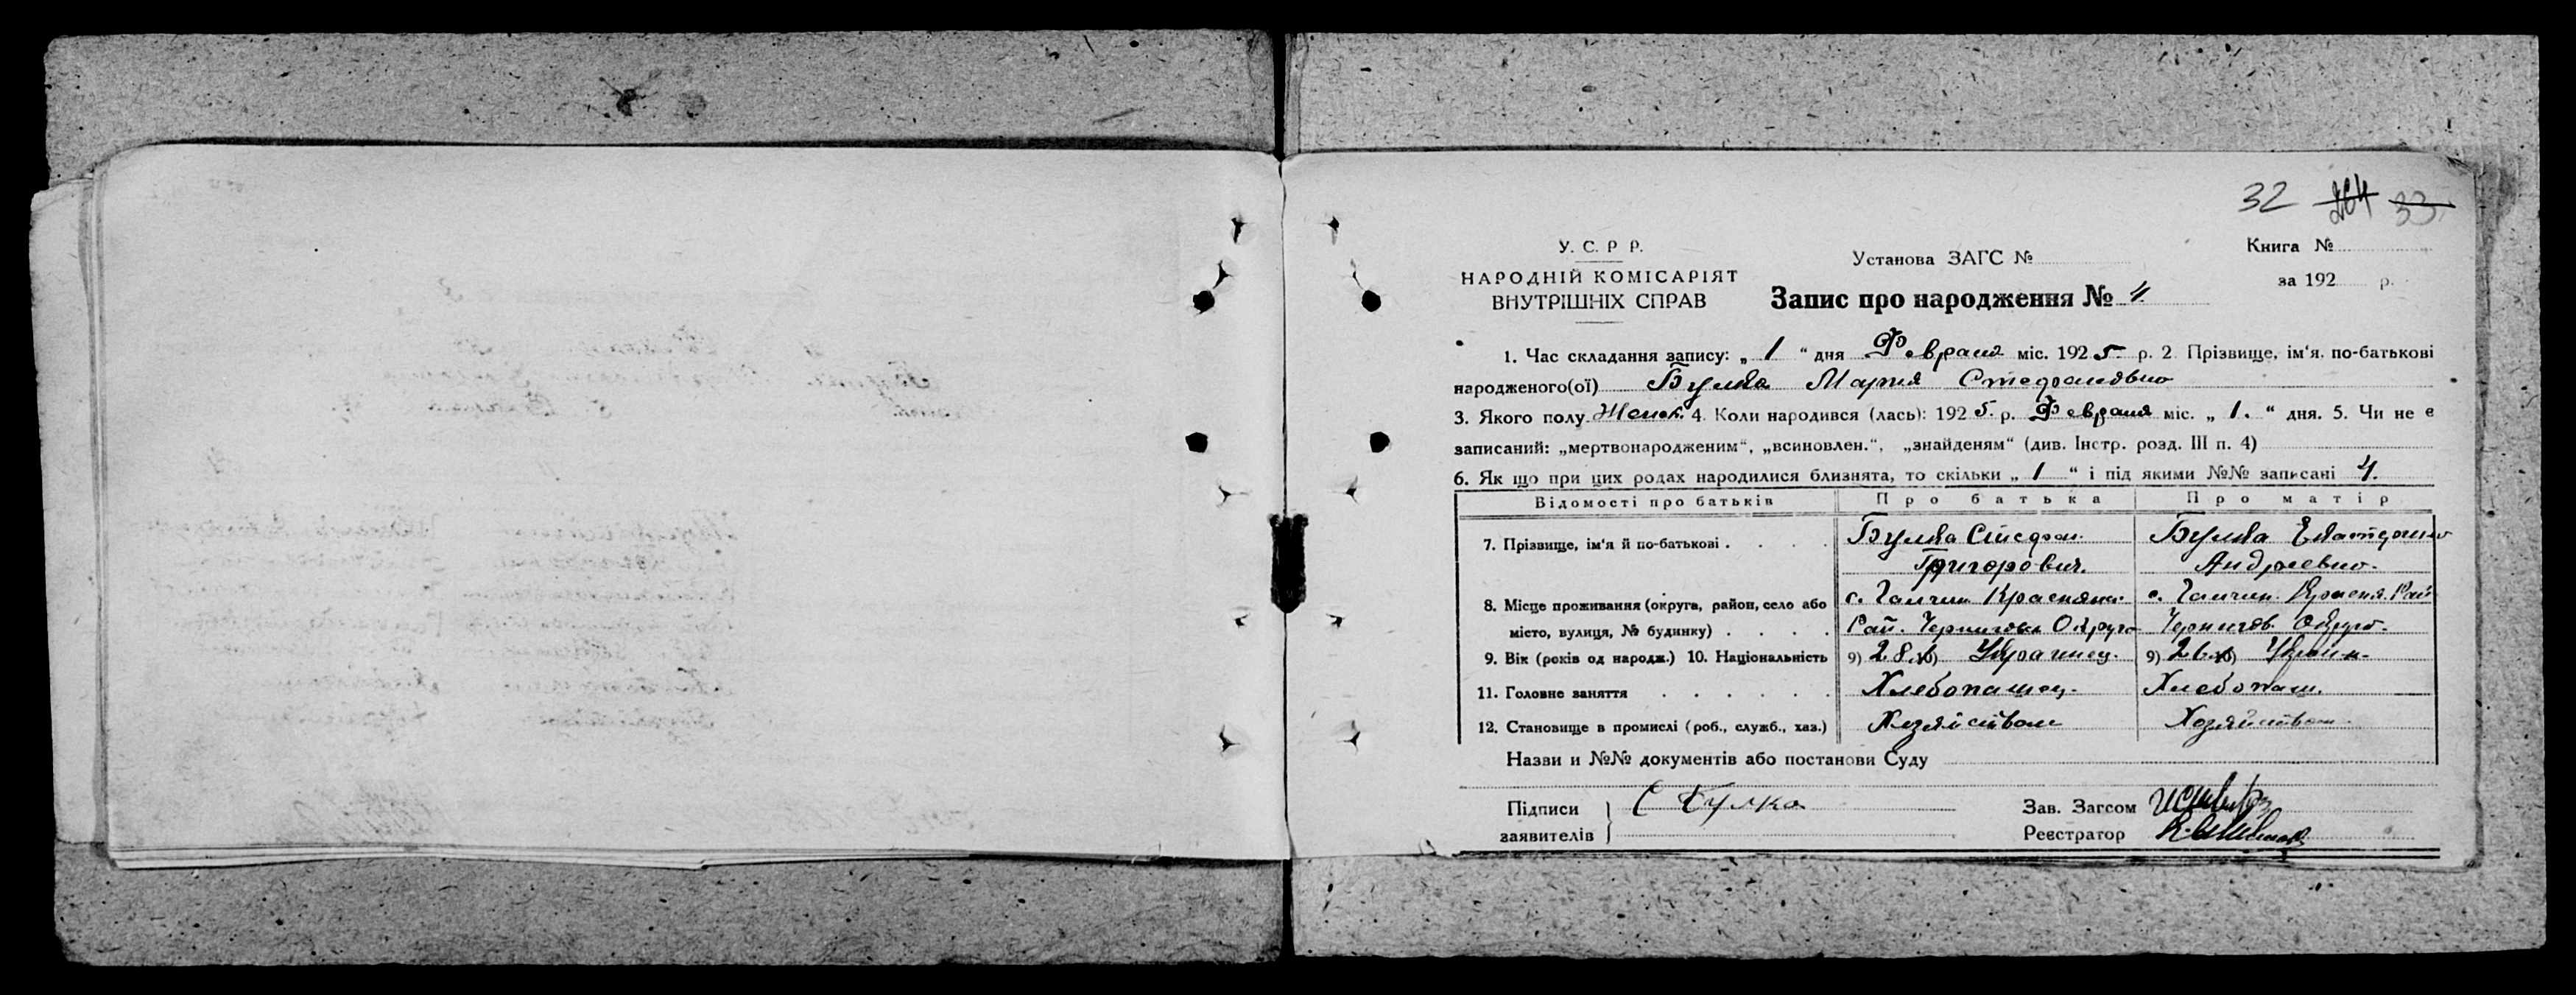 32 264 33
У. С. Р Р.
НАРОДНІЙ КОМІСАРІЯТ
ВНУТРІШНІХ СПРАВ
Установа ЗАГС №
Книга №
за 192 р.
Запис про народження № 4
1. Час складання запису: „ 1 “ дня Февраля міс. 1925 р. 2. Прізвище, ім'я, по-батькові
народженого(ої) Булка Мария Стефановно
3. Якого полу Женск. 4. Коли народився (лась): 1925. р. Февраля міс. „ 1. “ дня. 5. Чи не є
записаний: „мертвонародженим“, „всиновлен.“, „знайденям“ (див. Інстр. розд. III п. 4)
6. Як що при цих родах народилися близнята, то скільки „ 1 “ і під якими №№ записані 4.
Відомості про батьків Про батька Про матір
7. Прізвище, ім'я й по-батькові . . . . Булка Стефан Булка Екатерино
Григорович. Андреевно.
8. Місце проживання (округа, район, село або с. Галчин Краснян. с. Галчин. Краснян. Рай
місто, вулиця, № будинку) . . . . Рай. Чернигов. Округа Чернигов. Округо.
9. Вік (років од народж.) 10. Національність 9) 28 10) Украинец. 9) 26 10) Украин.
11. Головне заняття . . . . . . Хлебопашец. Хлебопаш.
12. Становище в промислі (роб., служб., хаз.) Хозяйством Хозяйством.
Назви и №№ документів або постанови Суду
Підписи С Булка Зав. Загсом
заявителів Реєстратор